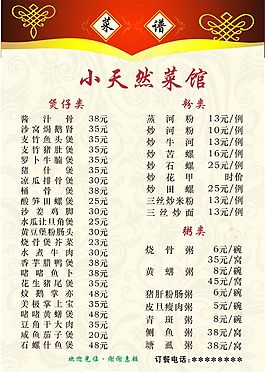 菜 谱
小天然菜馆
煲仔类
酱汁骨 38元
沙窝焗鹅肾 35元
支竹鱼头煲 35元
支竹猪肚煲 35元
罗卜牛腩煲 35元
猪什煲 35元
凉瓜排骨煲 30元
桶骨煲 30元
酸笋田螺煲 25元
沙姜鸡脚 30元
水瓜让旦角煲 25元
黄豆堡粉肠头 30元
烧骨煲芥菜 23元
水煮牛肉 30元
香芋腊鸭煲 30元
啫啫鱼卜 38元
花生猪尾煲 35元
炆鹅掌亦 48元
美极掌上宝 35元
啫啫黄蟮煲 48元
豆角干大肉 30元
咸鱼茄子煲 20元
石螺什鱼煲 58元
粉类
蒸河粉 13元/例
炒河粉 10元/例
炒牛河 13元/例
炒苦螺 16元/例
炒石螺 25元/例
炒花甲 时价
炒田螺 25元/例
三丝炒米粉 13元/例
三丝炒面 13元/例
粥类
烧骨粥 6元/碗
35元/窝
黄蟮粥 8元/碗
45元/窝
猪肝粉肠粥 6元/碗
皮旦瘦肉粥 5元/碗
青斑粥 8元/碗
鲗鱼粥 38元/窝
塘虱粥 38元/窝
欢迎光临·谢谢惠顾
订餐电话:********